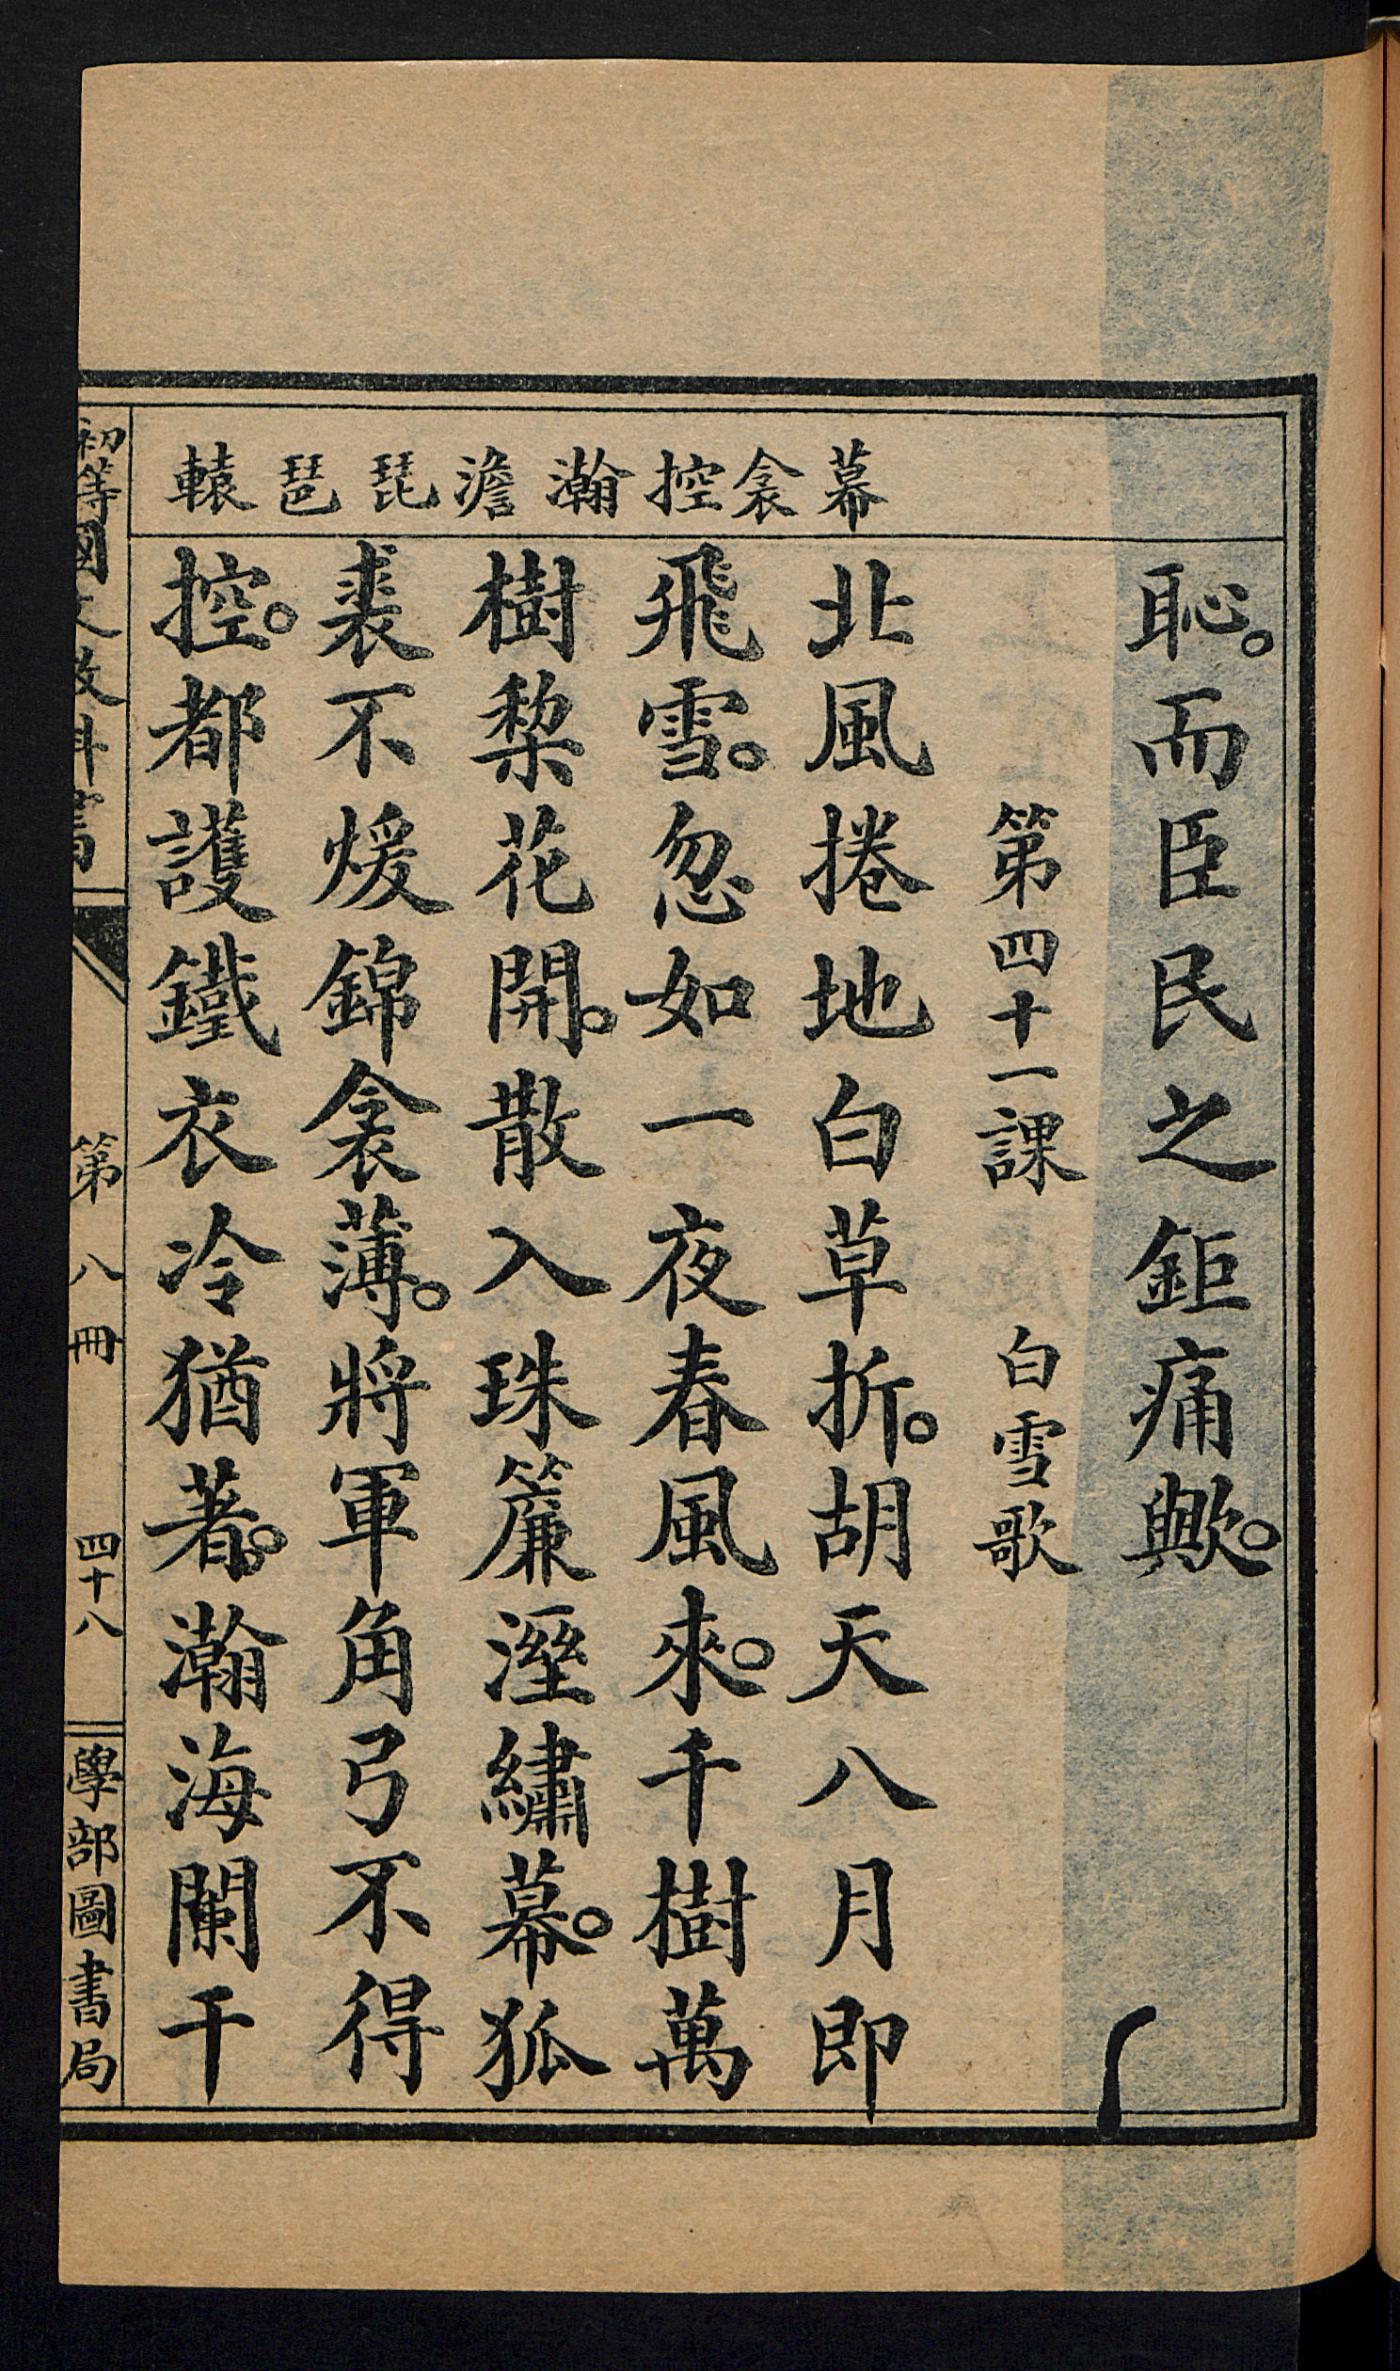 幕衾控瀚澹琵琶轅
恥。而臣民之鉅痛歟。
第四十一課 白雪歌
北風捲地白草折。胡天八月即
飛雪。忽如一夜春風來。千樹萬
樹棃花開。散入珠簾溼繡幕。狐
裘不煖錦衾薄。將軍角弓不得
控。都護鐵衣冷猶著。瀚海闌干
初等國文教科書 第八冊 四十八 學部圖書局